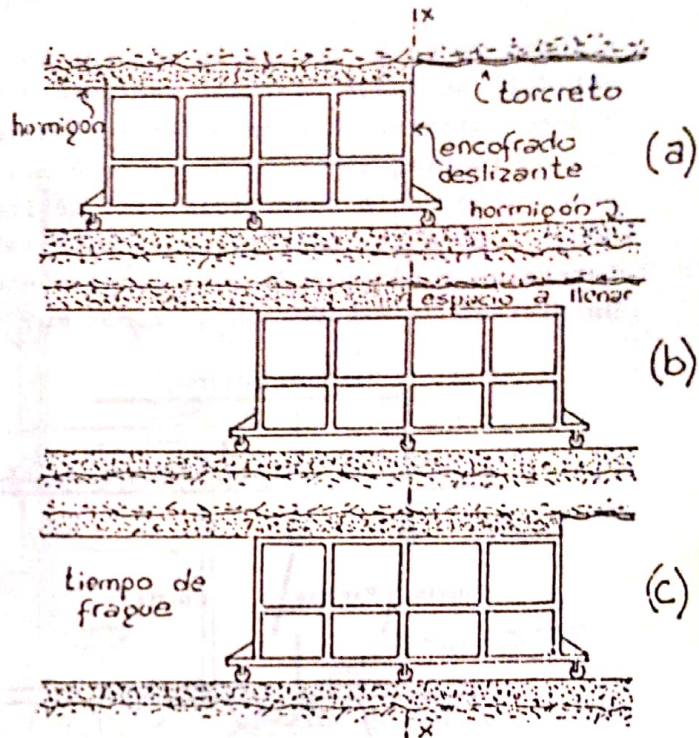 x
hormigón
torcreto
encofrado
deslizante
(a)
hormigón
espacio a llenar
(b)
tiempo de
frague
(c)
x